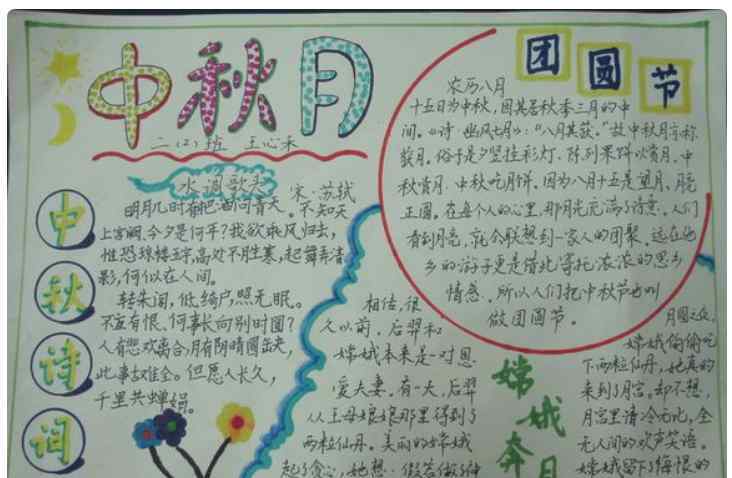 中秋月
二(2)班 王心禾
中
秋
诗
词
水调歌头
宋·苏轼
明月几时有把酒问青天。不知天
上宫阙,今夕是何年?我欲乘风归去,
惟恐琼楼玉宇,高处不胜寒,起舞弄清
影,何似在人间。
转朱阁,低绮户,照无眠。
不应有恨、何事长向别时圆?
人有悲欢离合,月有阴晴圆缺,
此事故难全。但愿人长久,
千里共婵娟。
团圆节
农历八月
十五日为中秋,因其居秋季三月的中
间。《诗·豳风七月》:“八月其获。”故中秋月亦称
获月。俗于是夕竖挂彩灯、陈列果饼以赏月、中
秋赏月、中秋吃月饼。因为八月十五是望月、月亮
正圆。在每个人的心里,那月光充满了诗意。人们
看到月亮,就会联想到一家人的团聚。远在他
乡的游子更是借此寄托浓浓的思乡
情感、所以人们把中秋节也叫
做团圆节。
相传,很
久以前,后羿和
嫦娥本来是一对恩
爱夫妻。有一天,后羿
从王母娘娘那里得到了
两粒仙丹。美丽的嫦娥
起了贪心,她想:假若做了神
嫦娥奔月
月圆之夜,
嫦娥偷偷吃
下两粒仙丹,她真的
来到了月宫,却不想,
月宫里清冷无比,全
无人间的欢声笑语。
嫦娥留下了悔恨的